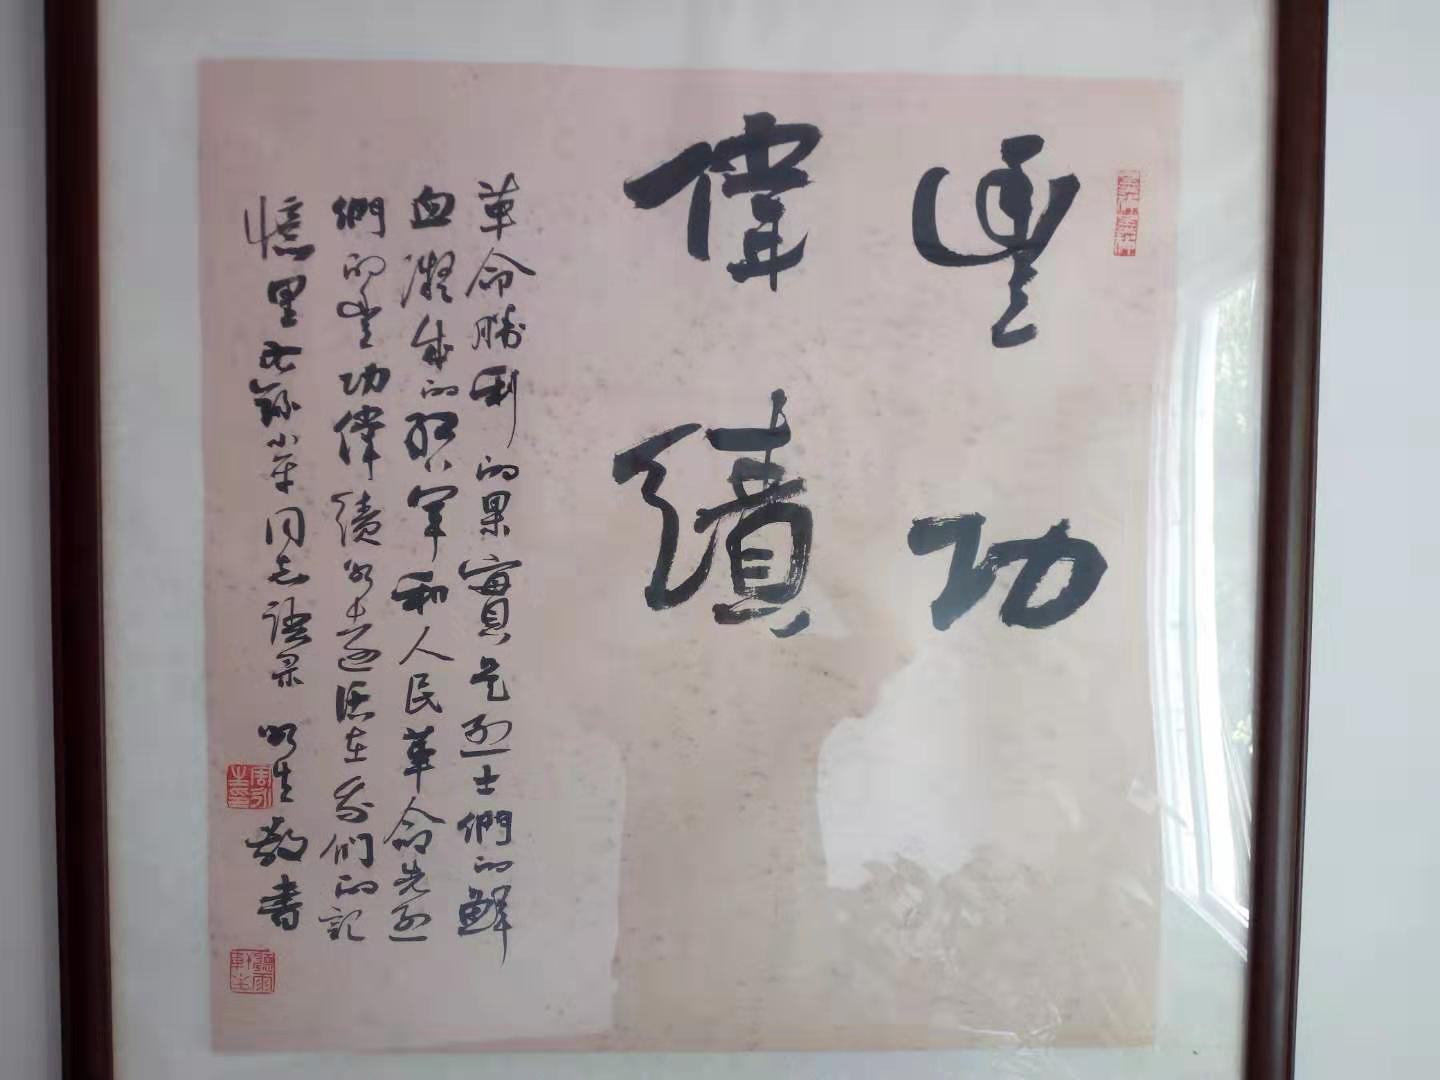 豐功
偉績
革命勝利的果實是烈士們的鮮
血凝成的紅軍和人民革命先烈
們的豐功偉績將永遠活在我们的記
憶里 小平同志語录 明生敬書